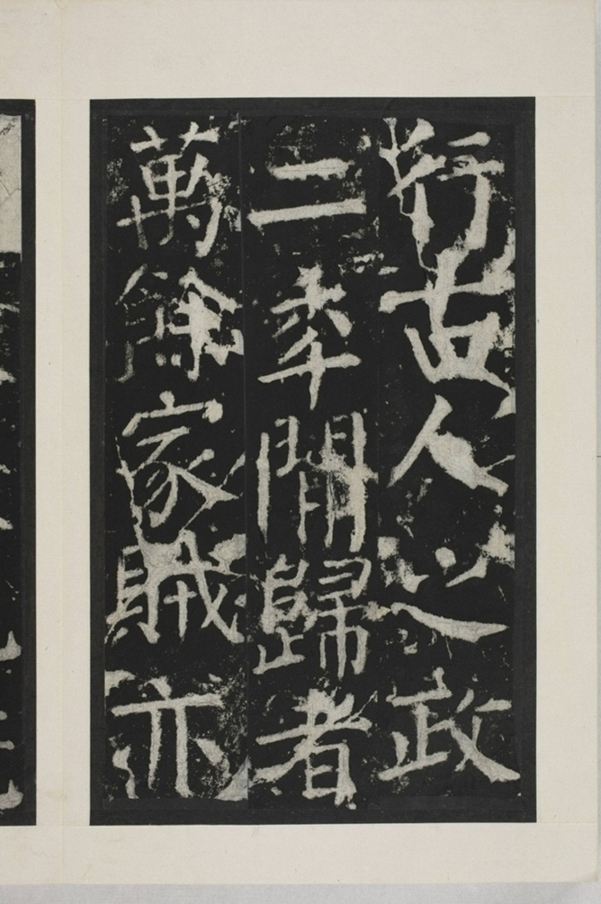 行古人之政
二秊閒歸者
萬餘家賊亦